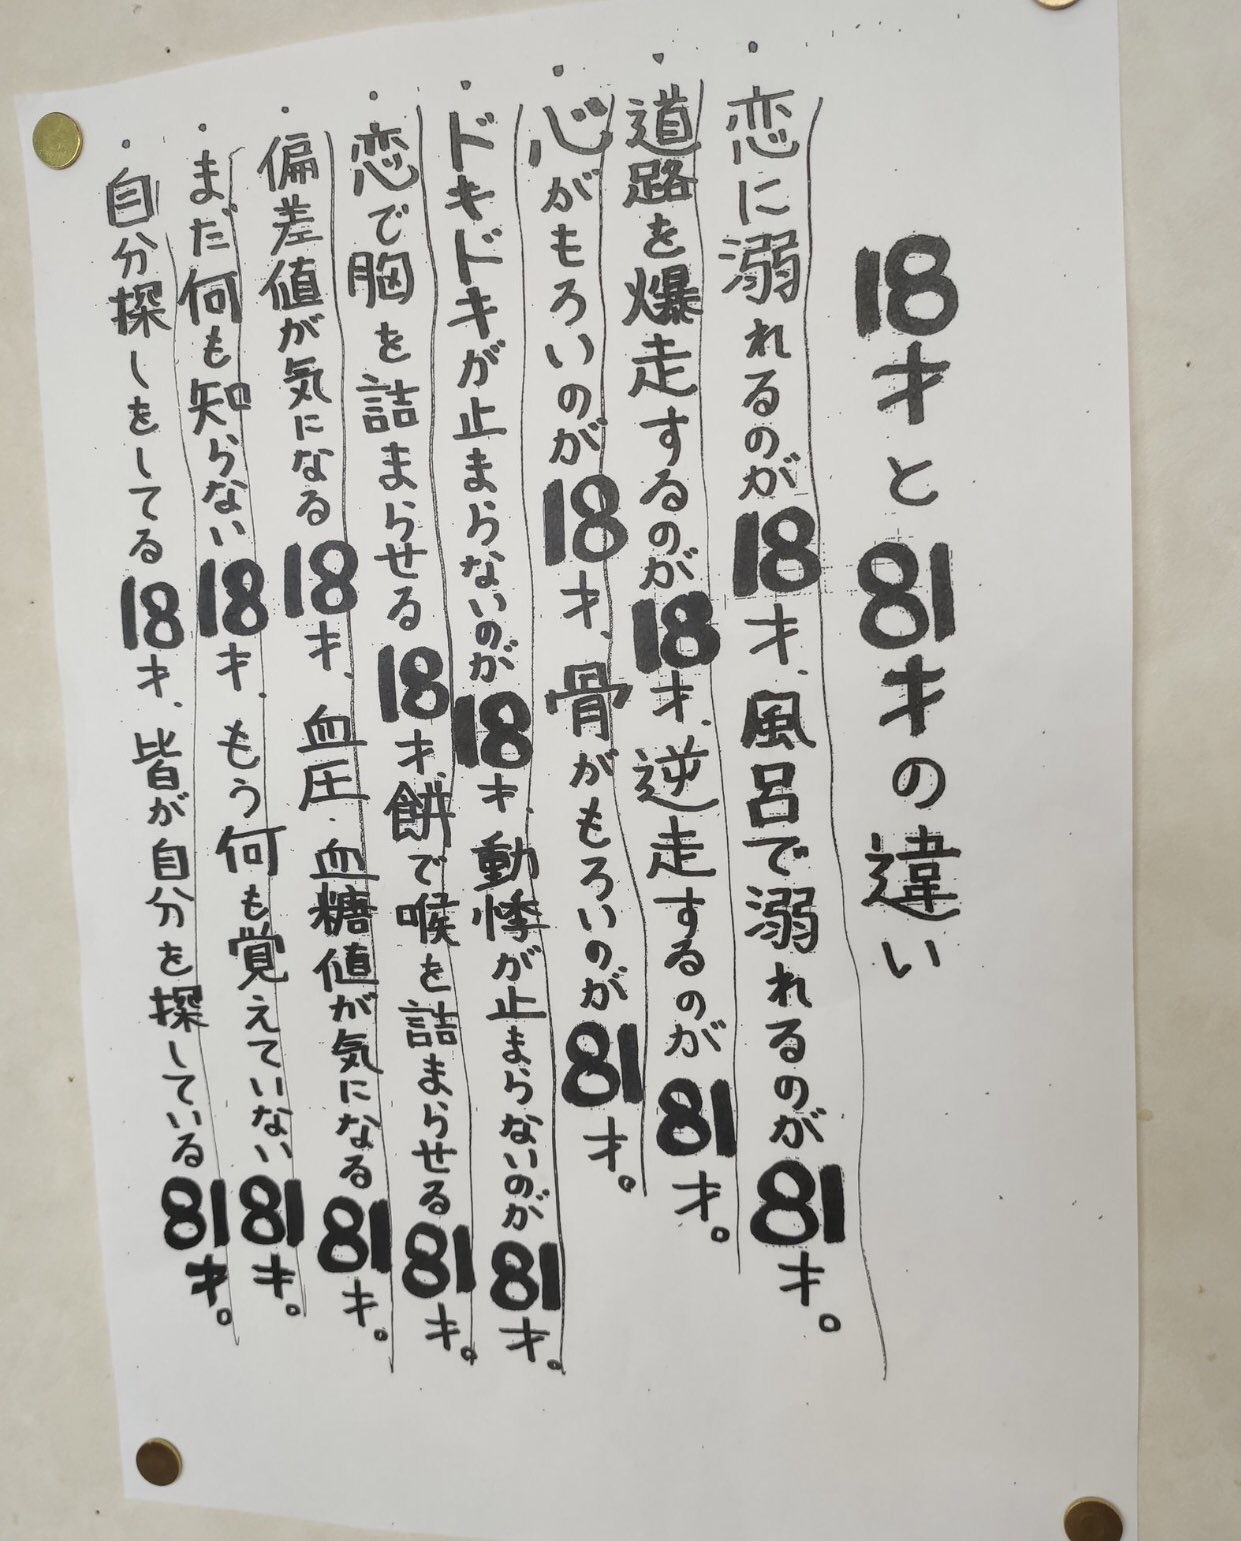 18才と81才の違い
・恋に溺れるのが18才、風呂で溺れるのが81才。
・道路を爆走するのが18才、逆走するのが81才。
・心がもろいのが18才、骨がもろいのが81才。
・ドキドキが止まらないのが18才、動悸が止まらないのが81才。
・恋で胸を詰まらせる18才、餅で喉を詰まらせる81才。
・偏差値が気になる18才、血圧・血糖値が気になる81才。
・まだ何も知らない18才、もう何も覚えていない81才。
・自分探しをしてる18才、皆が自分を探している81才。